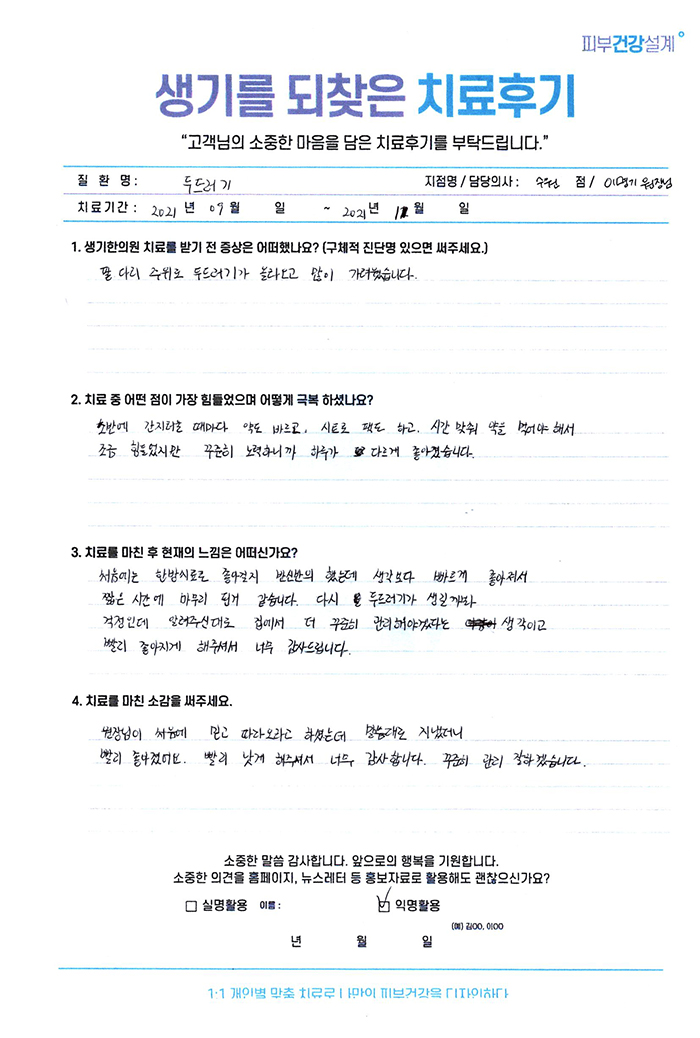 피부건강설계
생기를 되찾은 치료후기
"고객님의 소중한 마음을 담은 치료후기를 부탁드립니다."
질 환 명 : 두드러기 지점명 / 담당의사 : 수원 점 / 원장님
치료기간 : 2021 년 09 월 일 ~ 2021 년 12 월 일
1. 생기한의원 치료를 받기 전 증상은 어떠했나요? (구체적 진단명 있으면 써주세요.)
팔 다리 주위로 두드러기가 올라오고 많이 가려웠습니다.
2. 치료 중 어떤 점이 가장 힘들었으며 어떻게 극복 하셨나요?
초반에 간지러울 때마다 약도 바르고, 시트로 팩도 하고, 시간 맞춰 약을 먹어야 해서
조금 힘들었지만 꾸준히 노력하니까 하루가 다르게 좋아졌습니다.
3. 치료를 마친 후 현재의 느낌은 어떠신가요?
처음에는 한방치료로 좋아질지 반신반의 했는데 생각보다 빠르게 좋아져서
짧은 시간에 마무리 된거 같습니다. 다시 두드러기가 생길까봐
걱정인데 알려주신대로 집에서 더 꾸준히 관리해야겠다는 생각이고
빨리 좋아지게 해주셔서 너무 감사드립니다.
4. 치료를 마친 소감을 써주세요.
원장님이 처음에 믿고 따라오라고 하셨는데 말씀대로 지냈더니
빨리 좋아졌어요. 빨리 낫게 해주셔서 너무 감사합니다. 꾸준히 관리 잘하겠습니다.
소중한 말씀 감사합니다. 앞으로의 행복을 기원합니다.
소중한 의견을 홈페이지, 뉴스레터 등 홍보자료로 활용해도 괜찮으신가요?
□ 실명활용 이름 : ☑ 익명활용
(예) 김OO, 이OO
년 월 일
1:1 개인별 맞춤 치료로 나만의 피부건강을 디자인하다